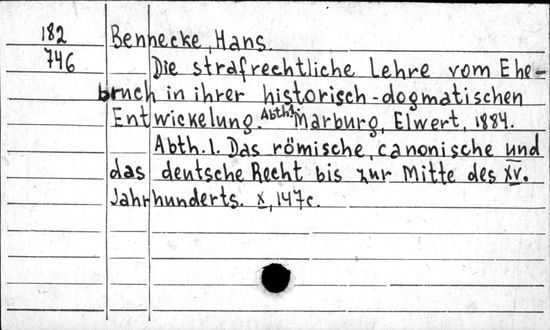 182 Bennecke, Hans.
746 Die strafrechtliche Lehre vom Ehe-
bruch in ihrer historisch-dogmatischen
Entwickelung. Abth.1. Marburg, Elwert, 1884.
Abth. 1. Das römische, canonische und
das deutsche Recht bis zur Mitte des XV.
Jahrhunderts. X, 147c.